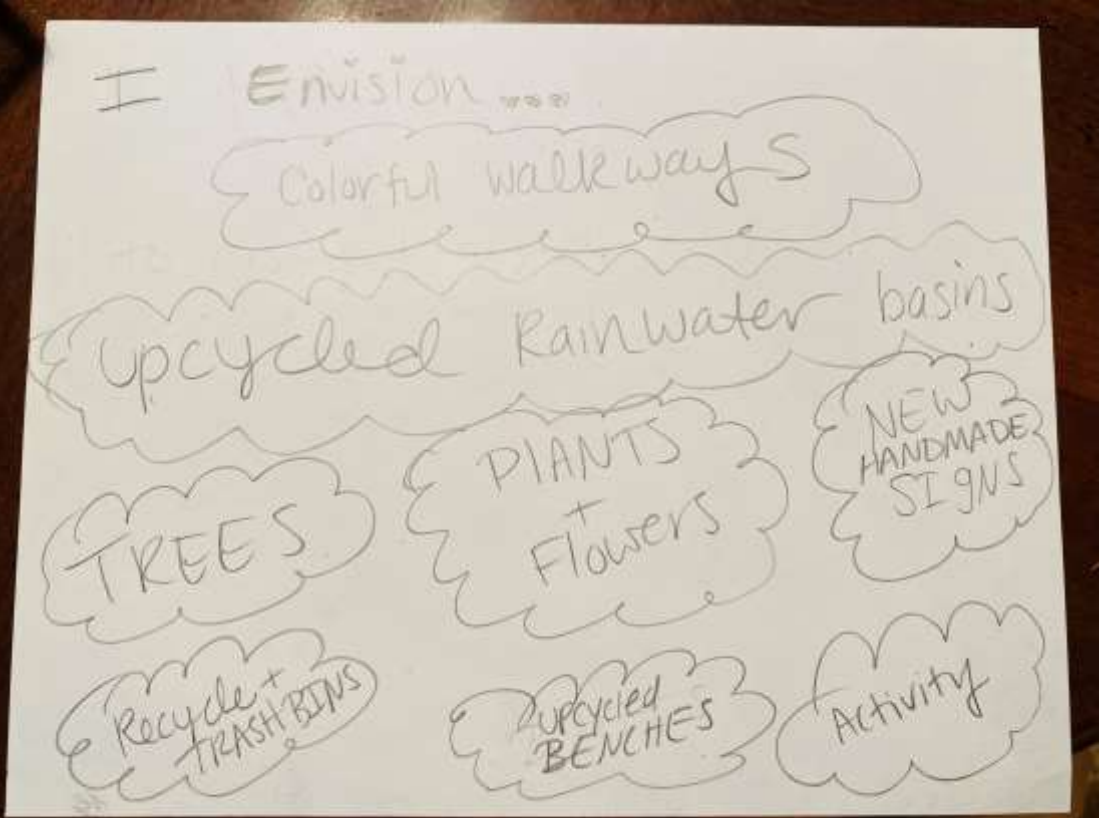 I Envision....
Colorful walkways
upcycled Rainwater basins
TREES
PlANTS
+
Flowers
NEW
HANDMADE
SIgNS
Recycle +
TRASH BINS
upcycled
BENCHES
Activity